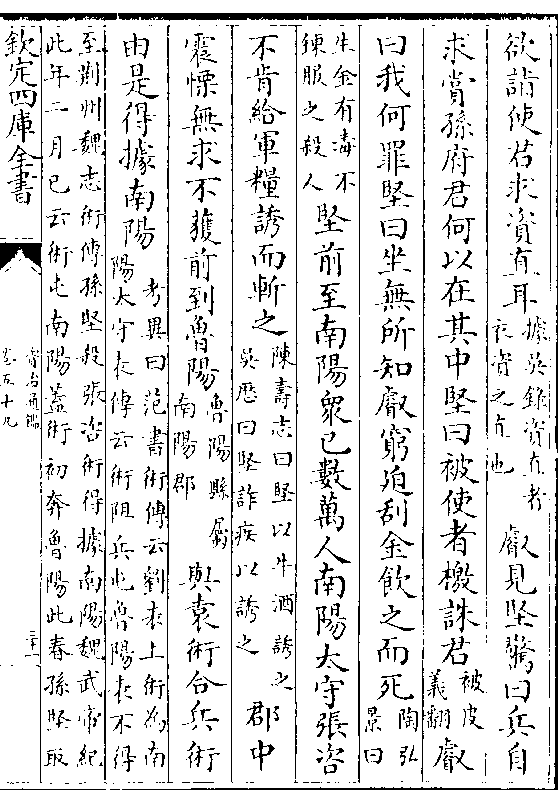 欲詣使君求資直耳據吳錄資直者衣資之直也叡見堅驚曰兵自
求賞孫府君何以在其中堅曰被使者檄誅君被皮義翻叡
曰我何罪堅曰坐無所知叡窮迫刮金飲之而死陶弘景曰
生金有毒不鍊服之殺人堅前至南陽衆已數萬人南陽太守張咨
不肯給軍糧誘而斬之陳壽志曰堅以牛酒誘之吳歴曰堅詐疾以誘之郡中
震慄無求不獲前到魯陽魯陽縣屬南陽郡與袁術合兵術
由是得據南陽考異曰范書術傳云劉表上術為南陽太守表傳云術阻兵屯魯陽表不得
至荆州魏志術傳孫堅殺張咨術得據南陽魏武帝紀
此年二月已云術屯南陽蓋術初奔魯陽此春孫堅取
欽定四庫全書
資治通鑑
卷五十九
二十一